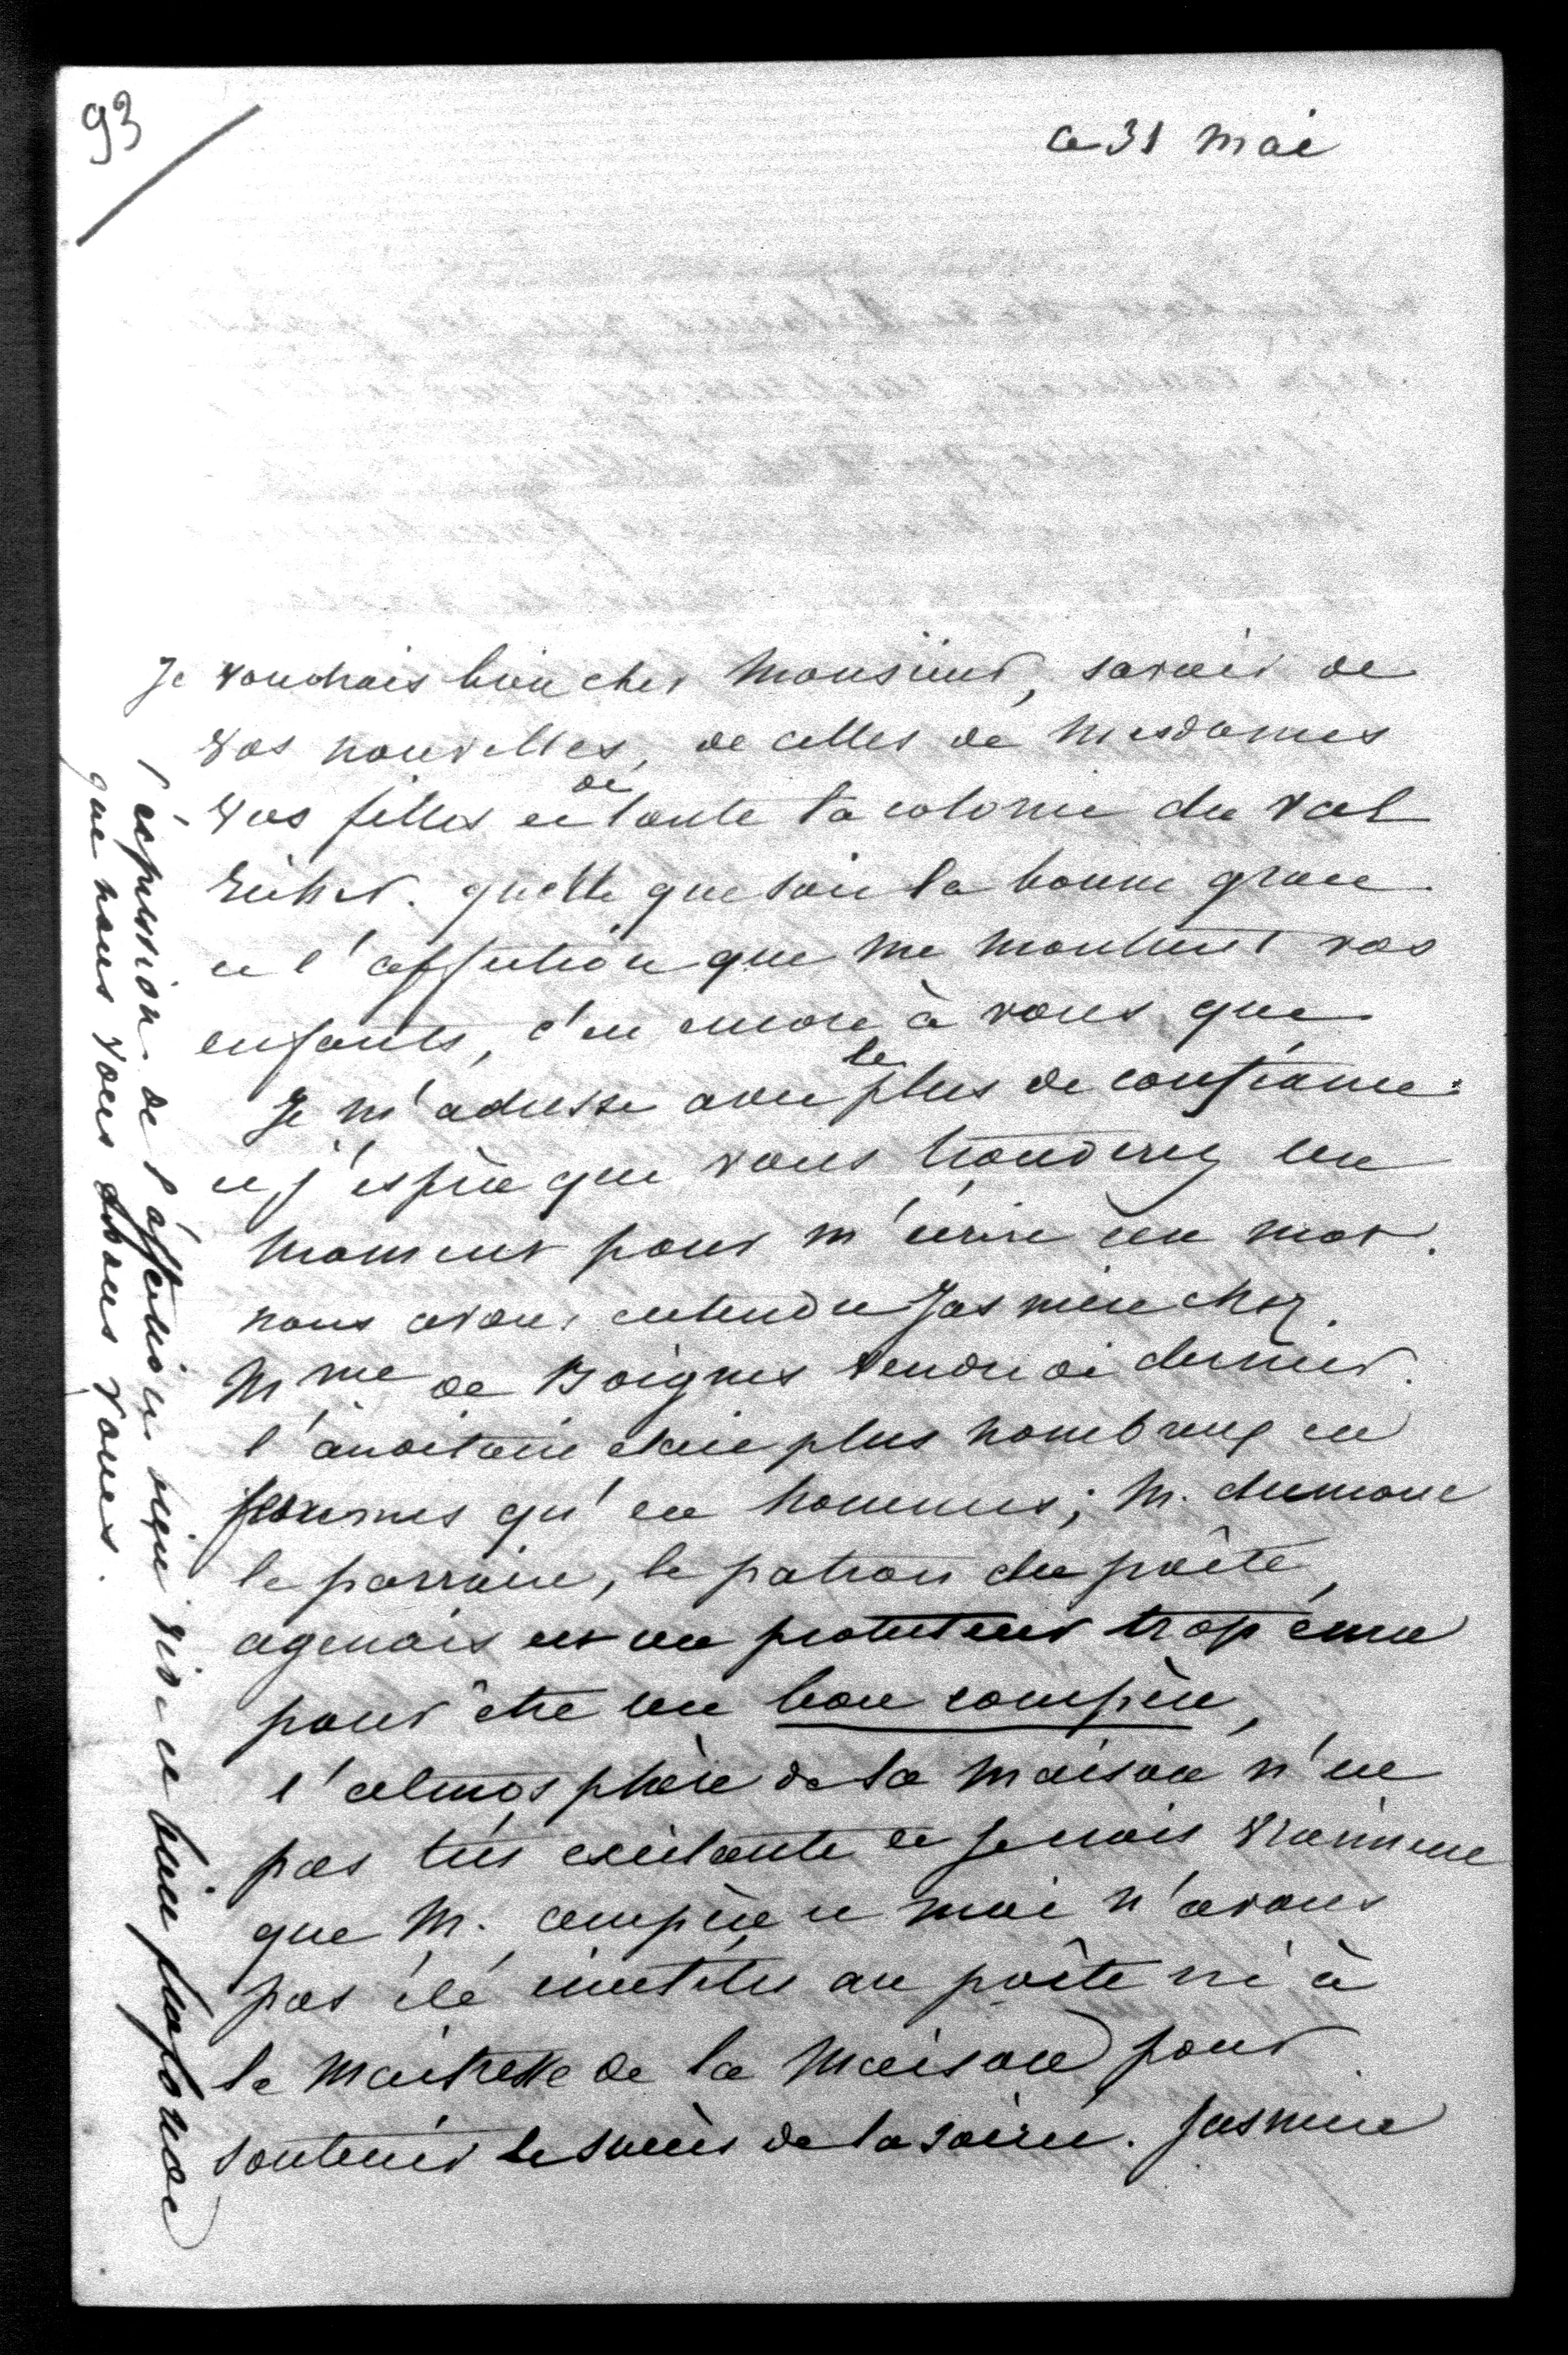 93
ce 31 mai
Je voudrais bien cher Monsieur, savoir de
vos nouvelles, de celles de Mesdames
vos filles et de toute la colonie du Val
Richer. quelle que soit la bonne grace
et l'affection que me montrent vos
enfants, c'est encore à vous que
Je m'adresse avec le plus de confiance
et j'espère que vous trouverez un
moment pour m'écrire un mot.
nous avons entendu Jasmin chez
Mme de Boignes vendredi dernier.
l'auditoire était plus nombreux en
femmes qu'en hommes; M. dumont
le parrain, le patron du poëte
agenais est un protecteur trop ému
pour être un bon compère,
l'atmosphère de la maison n'est
pas très excitante et je crois vraiment
que M. ampère et moi n'avons
pas été inutiles au poëte ni à
la maitresse de la maison pour
soutenir le succès de la soirée. Jasmin
l'expression de l'affection bien vive et bien profonde
que nous vous avons vouée.